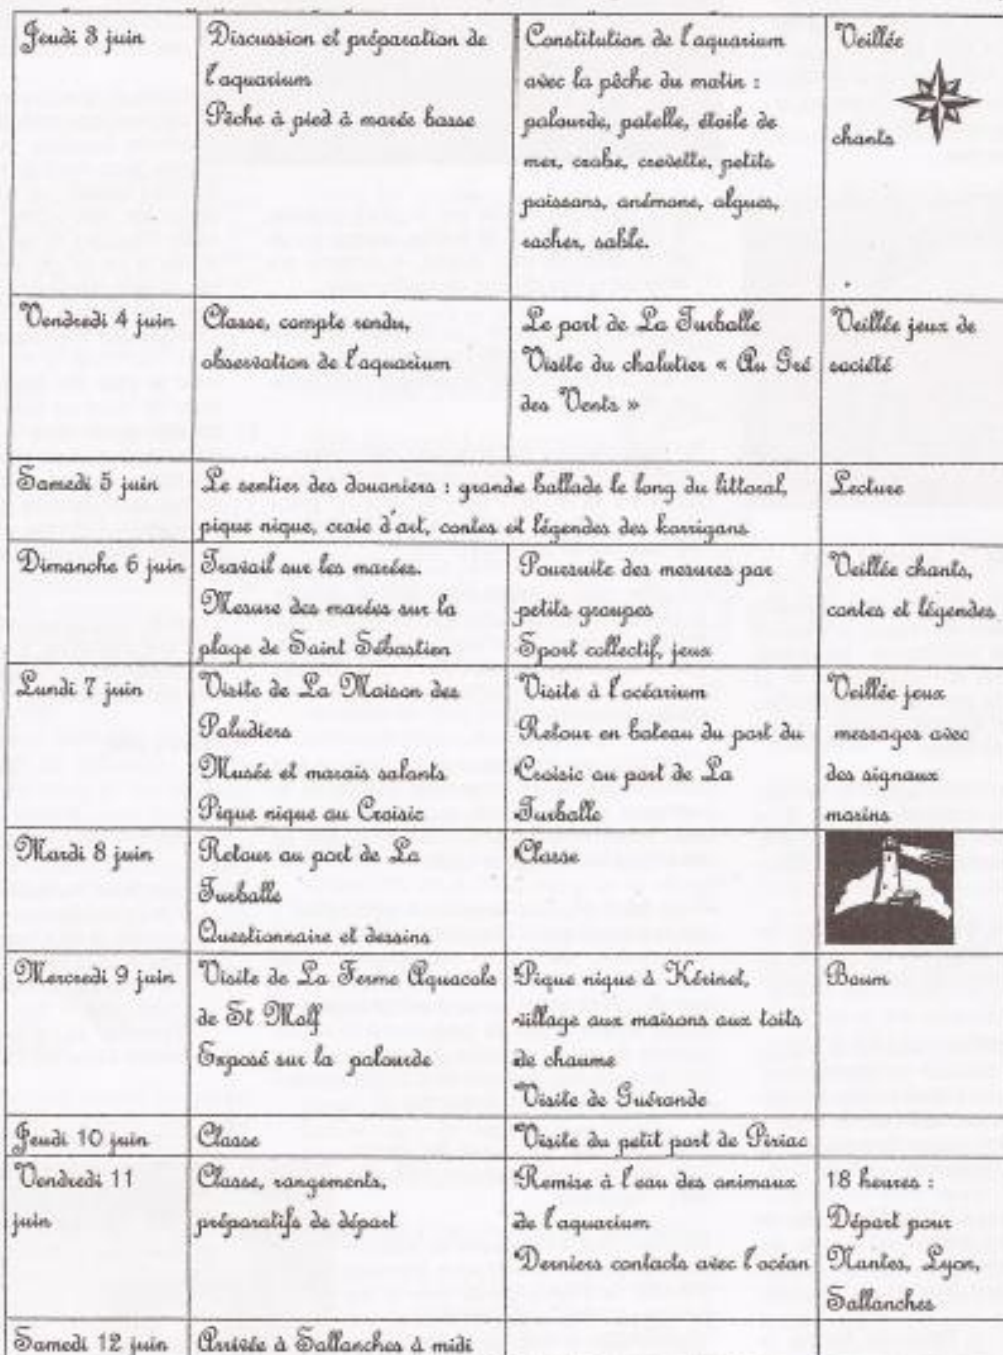 Jeudi 3 juin
Discussion et préparation de
l'aquarium
Pêche à pied à marée basse
Constitution de l'aquarium
avec la pêche du matin :
palourde, patelle, étoile de
mer, crabe, crevette, petits
poissons, anémone, algues,
rocher, sable.
Veillée
chants
Vendredi 4 juin
Classe, compte rendu,
observation de l'aquarium
Le port de La Turballe
Visite du chalutier « Au Gré
des Vents »
Veillée jeux de
société
Samedi 5 juin
Le sentier des douaniers : grande ballade le long du littoral,
pique nique, craie d'art, contes et légendes des korrigans
Lecture
Dimanche 6 juin
Travail sur les marées.
Mesure des marées sur la
plage de Saint Sébastien
Poursuite des mesures par
petits groupes
Sport collectif, jeux
Veillée chants,
contes et légendes
Lundi 7 juin
Visite de La Maison des
Paludiers
Musée et marais salants
Pique nique au Croisic
Visite à l'océarium
Retour en bateau du port du
Croisic au port de La
Turballe
Veillée jeux
messages avec
des signaux
marins
Mardi 8 juin
Retour au port de La
Turballe
Questionnaire et dessins
Classe
Mercredi 9 juin
Visite de La Ferme Aquacole
de St Molf
Exposé sur la palourde
Pique nique à Kérinet,
village aux maisons aux toits
de chaume
Visite de Guérande
Boum
Jeudi 10 juin
Classe
Visite du petit port de Piriac
Vendredi 11
juin
Classe, rangements,
préparatifs de départ
Remise à l'eau des animaux
de l'aquarium
Derniers contacts avec l'océan
18 heures :
Départ pour
Nantes, Lyon,
Sallanches
Samedi 12 juin
Arrivée à Sallanches à midi